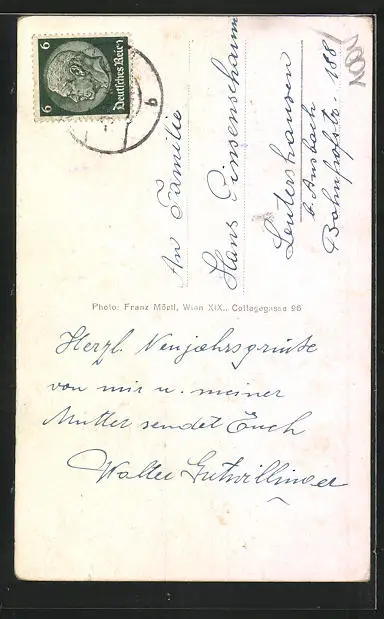 6 6
Deutsches Reich
b
An Familie
Hans Pinsenschaum
Leutershausen
b. Ansbach
Bahnhofstr. 188
Photo: Franz Mörtl, Wien XIX., Cottagegasse 26
Herzl. Neujahrsgrüße
von mir u. meiner
Mutter sendet Euch
Walter Gutwillinger